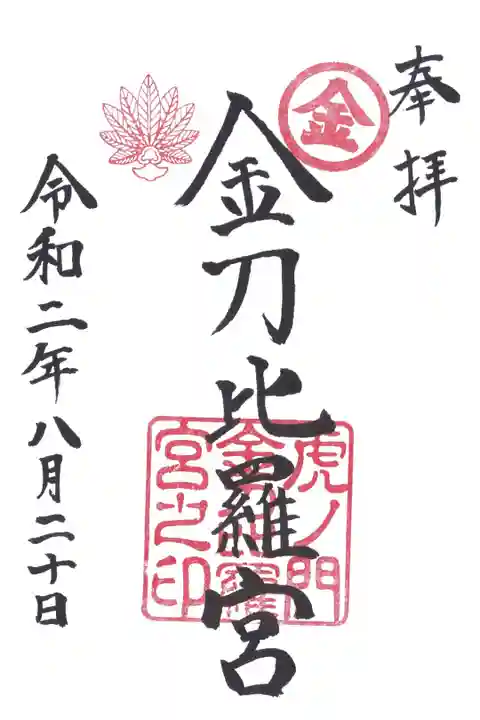 奉拝
金
金刀比羅宮
虎ノ門
金刀比羅
宮之印
令和二年八月二十日